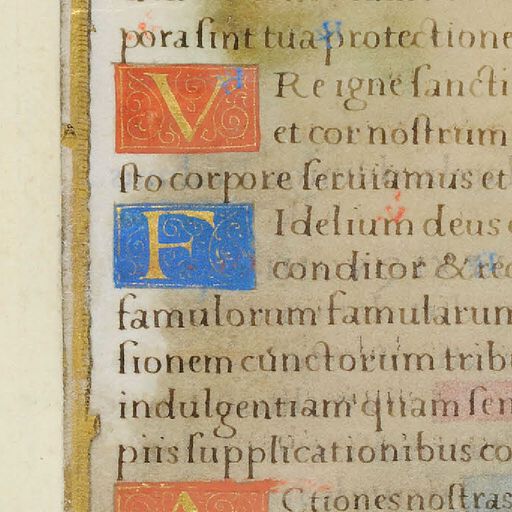 pora ſint tua protectione
VRe igne ſancti
et cor noſtrum
ſto corpore ſeruiamus et
FIdelium deus
conditor & re
famulorum famularum
ſionem cunctorum trib
indulgentiam quam ſem
piis ſupplicationibus co
ACtiones noſtras